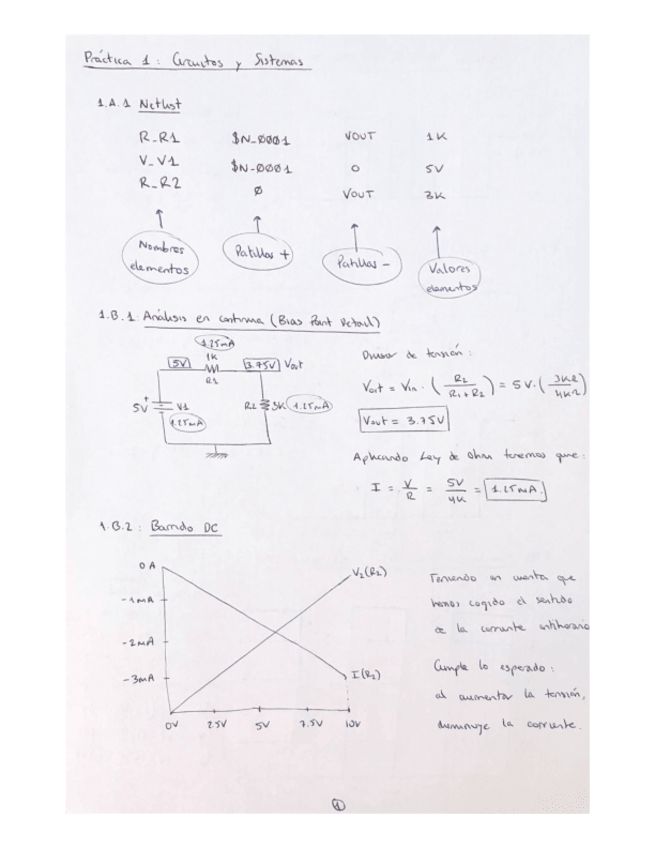 Práctica 1: Circuitos y Sistemas
1.A.1 Netlist
R_R1 $N_0001 VOUT 1K
V_V1 $N_0001 0 5V
R_R2 0 VOUT 3K
Nombres elementos
Patillas +
Patillas -
Valores elementos
1.B.1: Análisis en continua (Bias Point Detail)
1.25mA
5V
1K
R1
3.75V Vout
5V
V1
1.25mA
R2 3K 1.25mA
Divisor de tensión:
Vout = Vin · (R2 / R1+R2) = 5V · (3KΩ / 4KΩ)
Vout = 3.75V
Aplicando Ley de Ohm tenemos que:
I = V/R = 5V/4K = 1.25mA.
1.B.2: Barrido DC
0 A
-1mA
-2mA
-3mA
V2(R2)
I(R2)
0V 2.5V 5V 7.5V 10V
Teniendo en cuenta que
hemos cogido el sentido
de la corriente antihorario
Cumple lo esperado:
al aumentar la tensión,
disminuye la corriente.
1